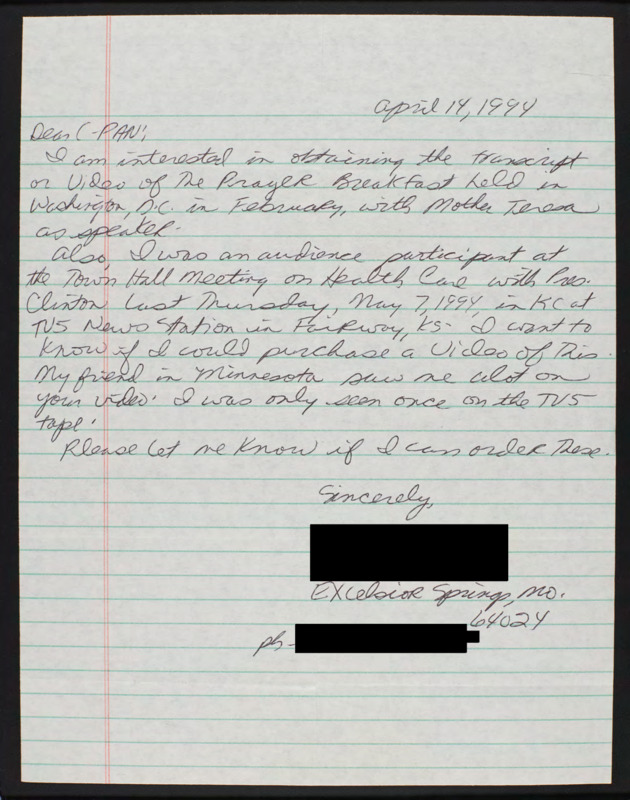 April 14, 1994
Dear C-PAN;
I am interested in obtaining the transcript
or Video of The Prayer Breakfast held in
Washington, D.C. in February, with Mother Teresa
as speaker.
Also, I was an audience participant at
the Town Hall Meeting on Health Care with Pres.
Clinton last Thursday, May 7, 1994, in KC at
TV5 News Station in Fairway, KS. I want to
know if I could purchase a Video of This.
My friend in Minnesota saw me alot on
your video! I was only seen once on the TV5
tape!
Please let me know if I can order These.
Sincerely,
Excelsior Springs, MO.
64024
ph-